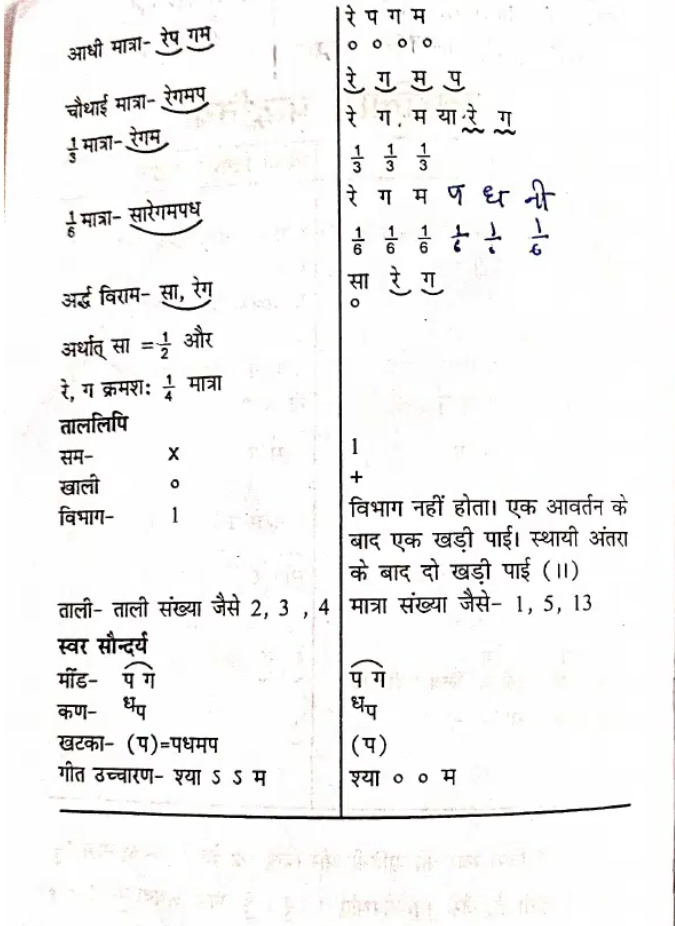 रे प ग म
आधी मात्रा- रेप गम
० ० ० ०
रे ग म प
चौथाई मात्रा- रेगमप
रे ग, म या रे ग
1/3 मात्रा- रेगम
1/3 1/3 1/3
रे ग म प ध नी
1/6 मात्रा- सारेगमपध
1/6 1/6 1/6 1/6 1/6 1/6
अर्द्ध विराम- सा, रेग
सा रे ग
०
अर्थात् सा = 1/2 और
रे, ग क्रमशः 1/4 मात्रा
ताललिपि
सम- x 1
खाली ० +
विभाग- 1 विभाग नहीं होता। एक आवर्तन के
बाद एक खड़ी पाई। स्थायी अंतरा
के बाद दो खड़ी पाई (।।)
ताली- ताली संख्या जैसे 2, 3 , 4 मात्रा संख्या जैसे- 1, 5, 13
स्वर सौन्दर्य
मींड- प ग प ग
कण- धप धप
खटका- (प)=पधमप (प)
गीत उच्चारण- श्या ऽ ऽ म श्या ० ० म